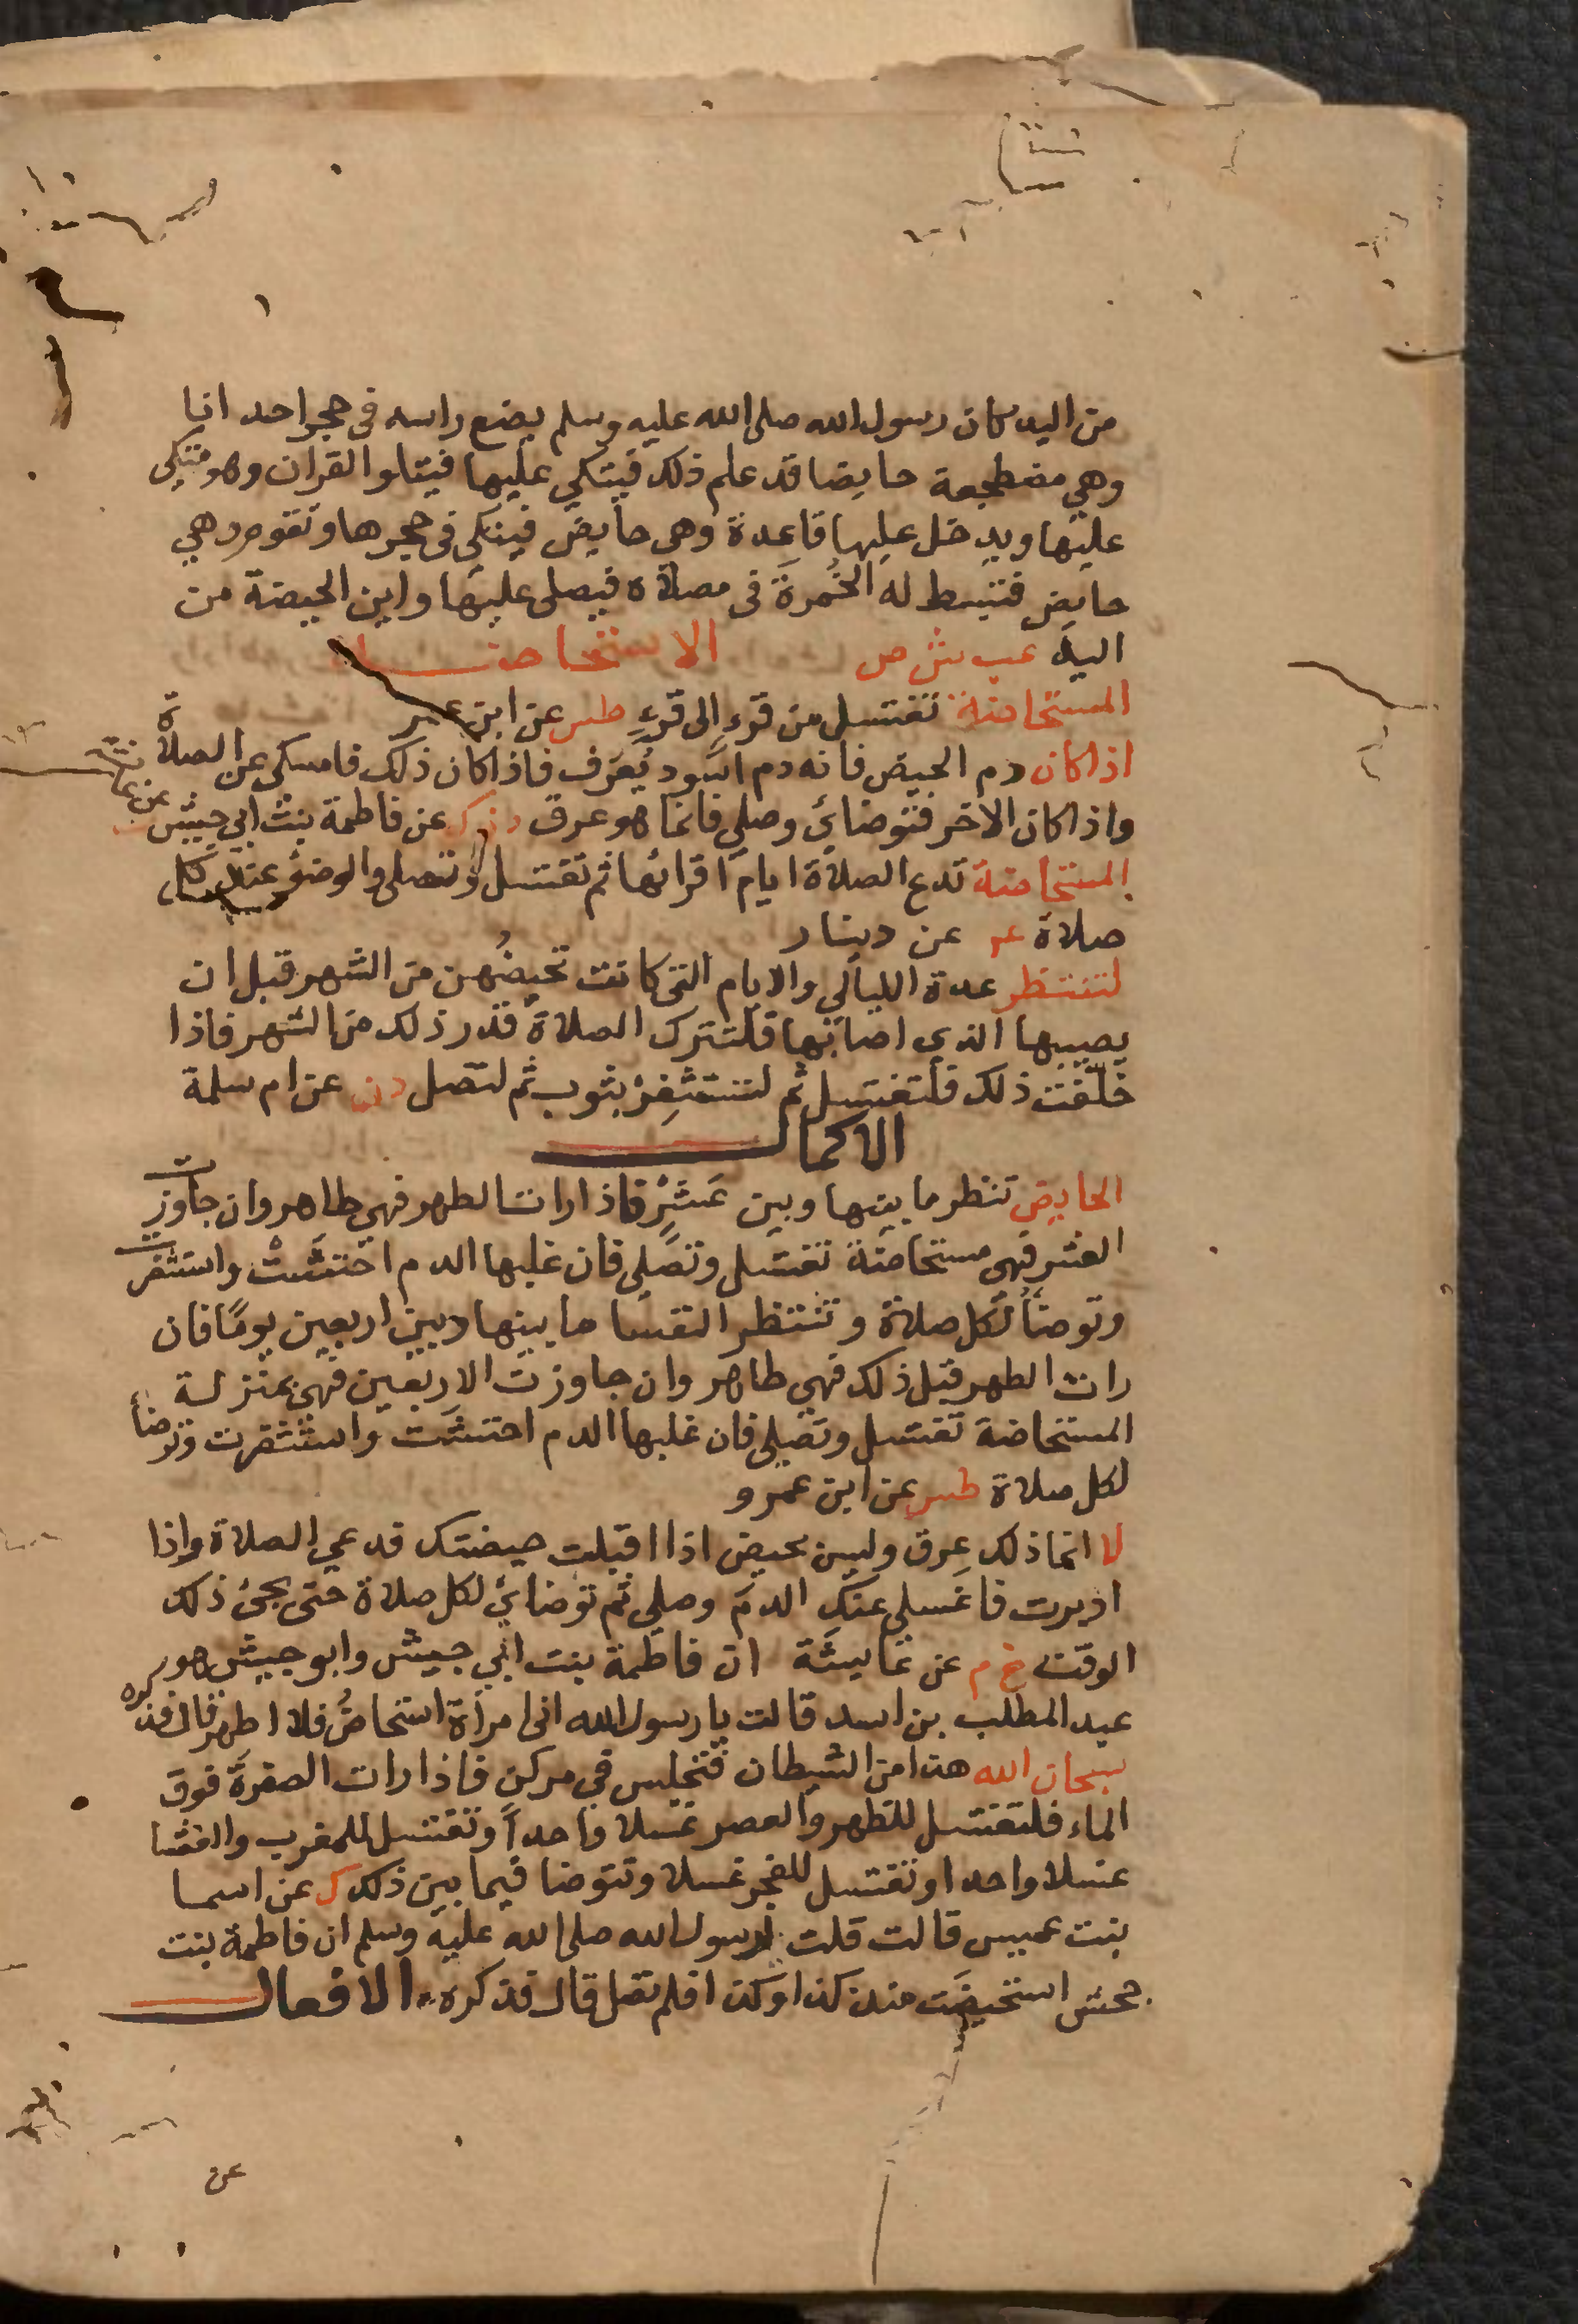 من اليد كان رسول الله صلى الله عليه وسلم يضع راسه فى حجر احدانا
وهي مضطجعة حايضا قد علم ذلك فيتكي عليها فيتلوا القران وهو متكي
عليها ويدخل عليها قاعدة وهى حايض فيتكى فى حجرها وتقوم وهي
حايض فتبسط له الخُمرةَ فى مصلاه فيصلى عليها واين الحيضة من
اليد عب ش ص الاستحاضة
المستحاضة تغتسل من قرءٍ الى قرءٍ طس عن ابن عمر
اذا كان دم الحيض فانه دم اسود يُعرَف فاذا كان ذلك فامسكى عن الصلاة
واذا كان الاخر فتوضائ وصلي فانما هو عرق د ن ك عن فاطمة بنت ابي حبيش
المستحاضة تدع الصلاة ايام اقرائها ثم تغتسل وتصلى والوضؤ عند كل
صلاة عن دينار
لتنتظر عدة الليالي والايام التى كانت تحيضُهن من الشهر قبل ان
يصيبها الذي اصابها فلتترك الصلاة قدر ذلك من الشهر فاذا
خلّفت ذلك فلتغتسل ثم لتستثفِرْ بثوب ثم لتصل د ن عن ام سلمة
الاكمال
الحايض تنظر ما بينها وبين عَشْرٍ فاذا رات الطهر فهي طاهر وان جاوزت
العشر فهى مستحاضة تغتسل وتصلى فان غلبها الدم احتشَتْ واستثفرت
وتوضأ لكل صلاة وتنتظر النفسا ما بينها وبين اربعين يومًا فان
رات الطهر قبل ذلك فهي طاهر وان جاوزت الاربعين فهى بمنزلة
المستحاضة تغتسل وتصلى فان غلبها الدم احتشت واستثفرت وتوضأ
لكل صلاة طس عن ابن عمرو
لا انما ذلك عِرق وليس بحيض اذا اقبلت حيضتك فدعي الصلاة واذا
ادبرت فاغسلى عنكِ الدمَ وصلي ثم توضائ لكل صلاة حتى يجئ ذلك
الوقت خ م عن عايشة ان فاطمة بنت ابي حبيش وابو حبيش هو
عبد المطلب بن اسد قالت يا رسول الله انى امرأة استحاضُ فلا اطهر قال فذكره
سبحان الله هذا من الشيطان فتجلس في مركن فاذا رات الصفرةَ فوق
الماء فلتغتسل للظهر والعصر غسلا واحداً وتغتسل للمغرب والعشا
غسلا واحدا وتغتسل للفجر غسلا وتتوضا فيما بين ذلك ك عن اسما
بنت عميس قالت قلت لرسول الله صلى الله عليه وسلم ان فاطمة بنت
حبش استحيضَت منذ كذا وكذا فلم تصل قال فذكره الافعال
عن